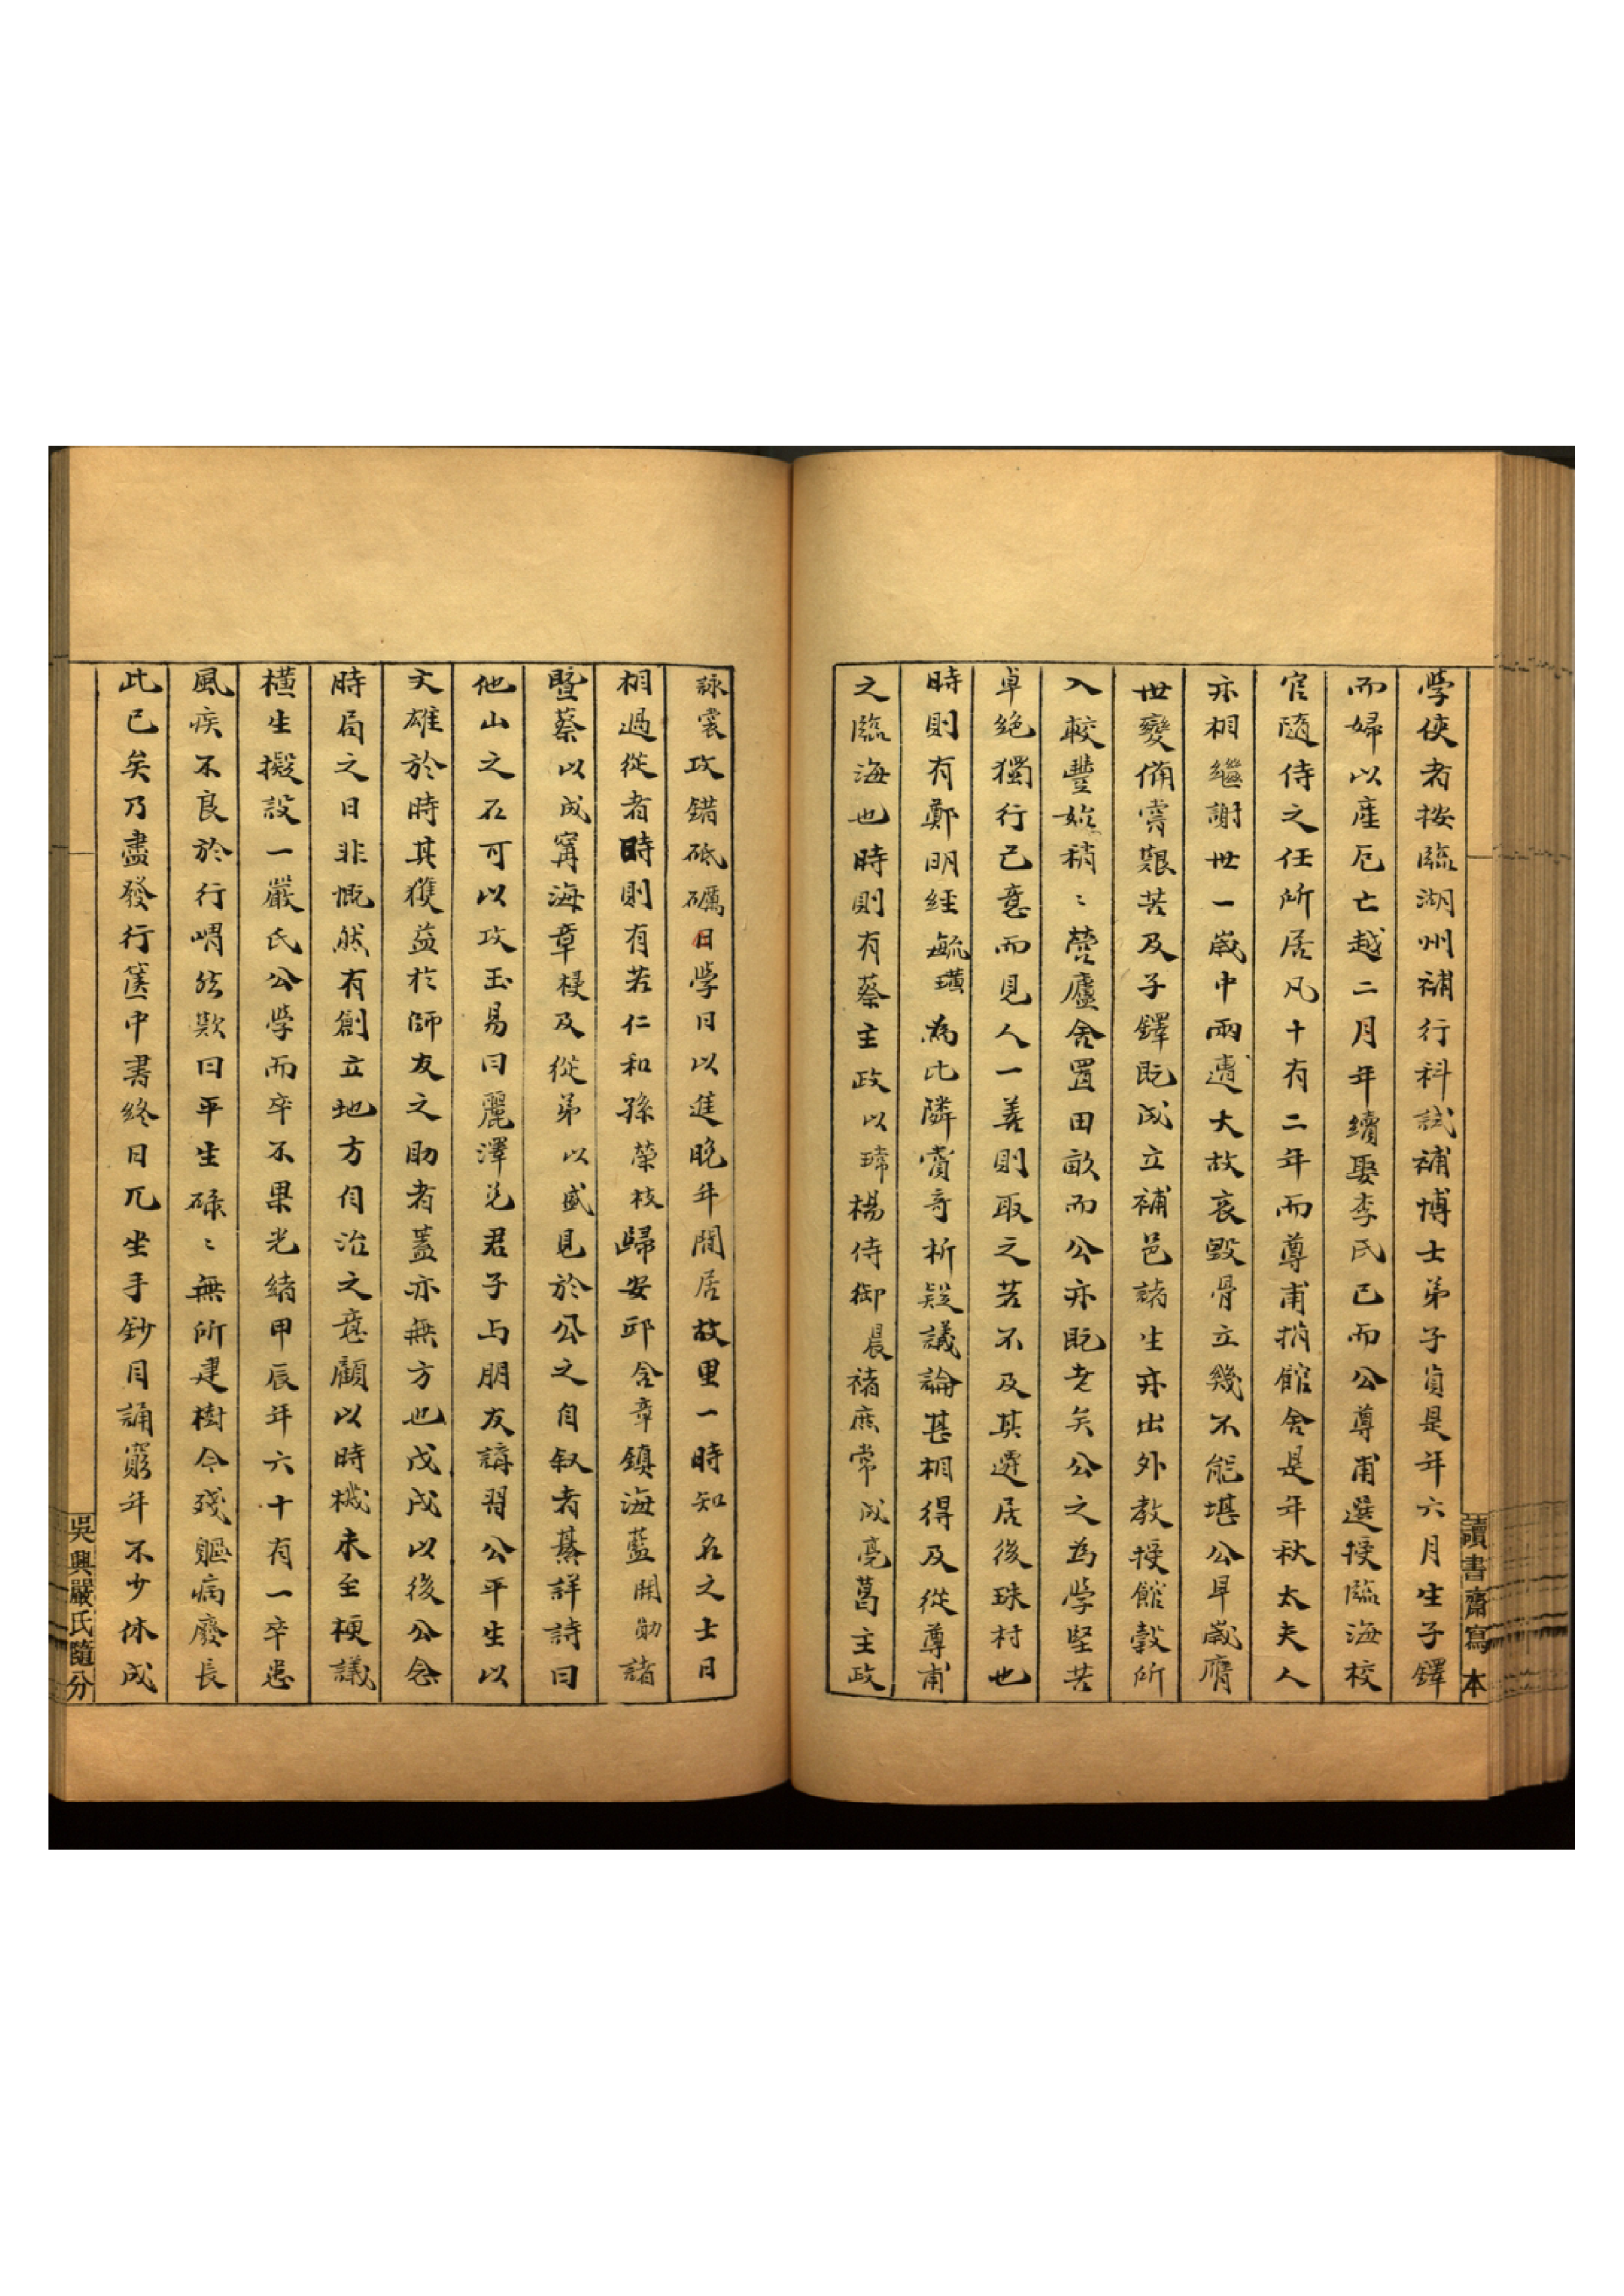 學使者按臨湖州補行科試補博士弟子員是年六月生子鐸
而婦以產厄亡越二月年續娶李氏已而公尊甫選授臨海校
官隨侍之任所居凡十有二年而尊甫捐館舍是年秋太夫人
亦相繼謝世一歲中兩遭大故哀毀骨立幾不能堪公早歲膺
世變備嘗艱苦及子鐸既成立補邑諸生亦出外教授館穀所
入較豐始稍〻營廬舍置田畝而公亦既老矣公之為學堅苦
卓絕獨行己意而見人一善則取之若不及其遷居後珠村也
時則有鄭明經毓璜為比隣賞奇析疑議論甚相得及從尊甫
之臨海也時則有蔡主政以瑺楊侍御晨褚庶常成亮葛主政
詠裳攻錯砥礪日學日以進晚年閒居故里一時知名之士日
相過從者時則有若仁和孫榮枝歸安邱含章鎮海藍開勛諸
暨蔡以成甯海章梫及從弟以盛見於公之自叙者綦詳詩曰
他山之石可以攻玉易曰麗澤兌君子与朋友講習公平生以
文雄於時其獲益於師友之助者蓋亦無方也戊戌以後公念
時局之日非慨然有創立地方自治之意顧以時機未至梗議
橫生擬設一嚴氏公學而卒不果光緒甲辰年六十有一卒患
風疾不良於行喟然歎曰平生碌〻無所建樹今殘軀病廢長
此已矣乃盡發行篋中書終日兀坐手鈔目誦窮年不少休成
讀書齋寫本
吳興嚴氏隨分